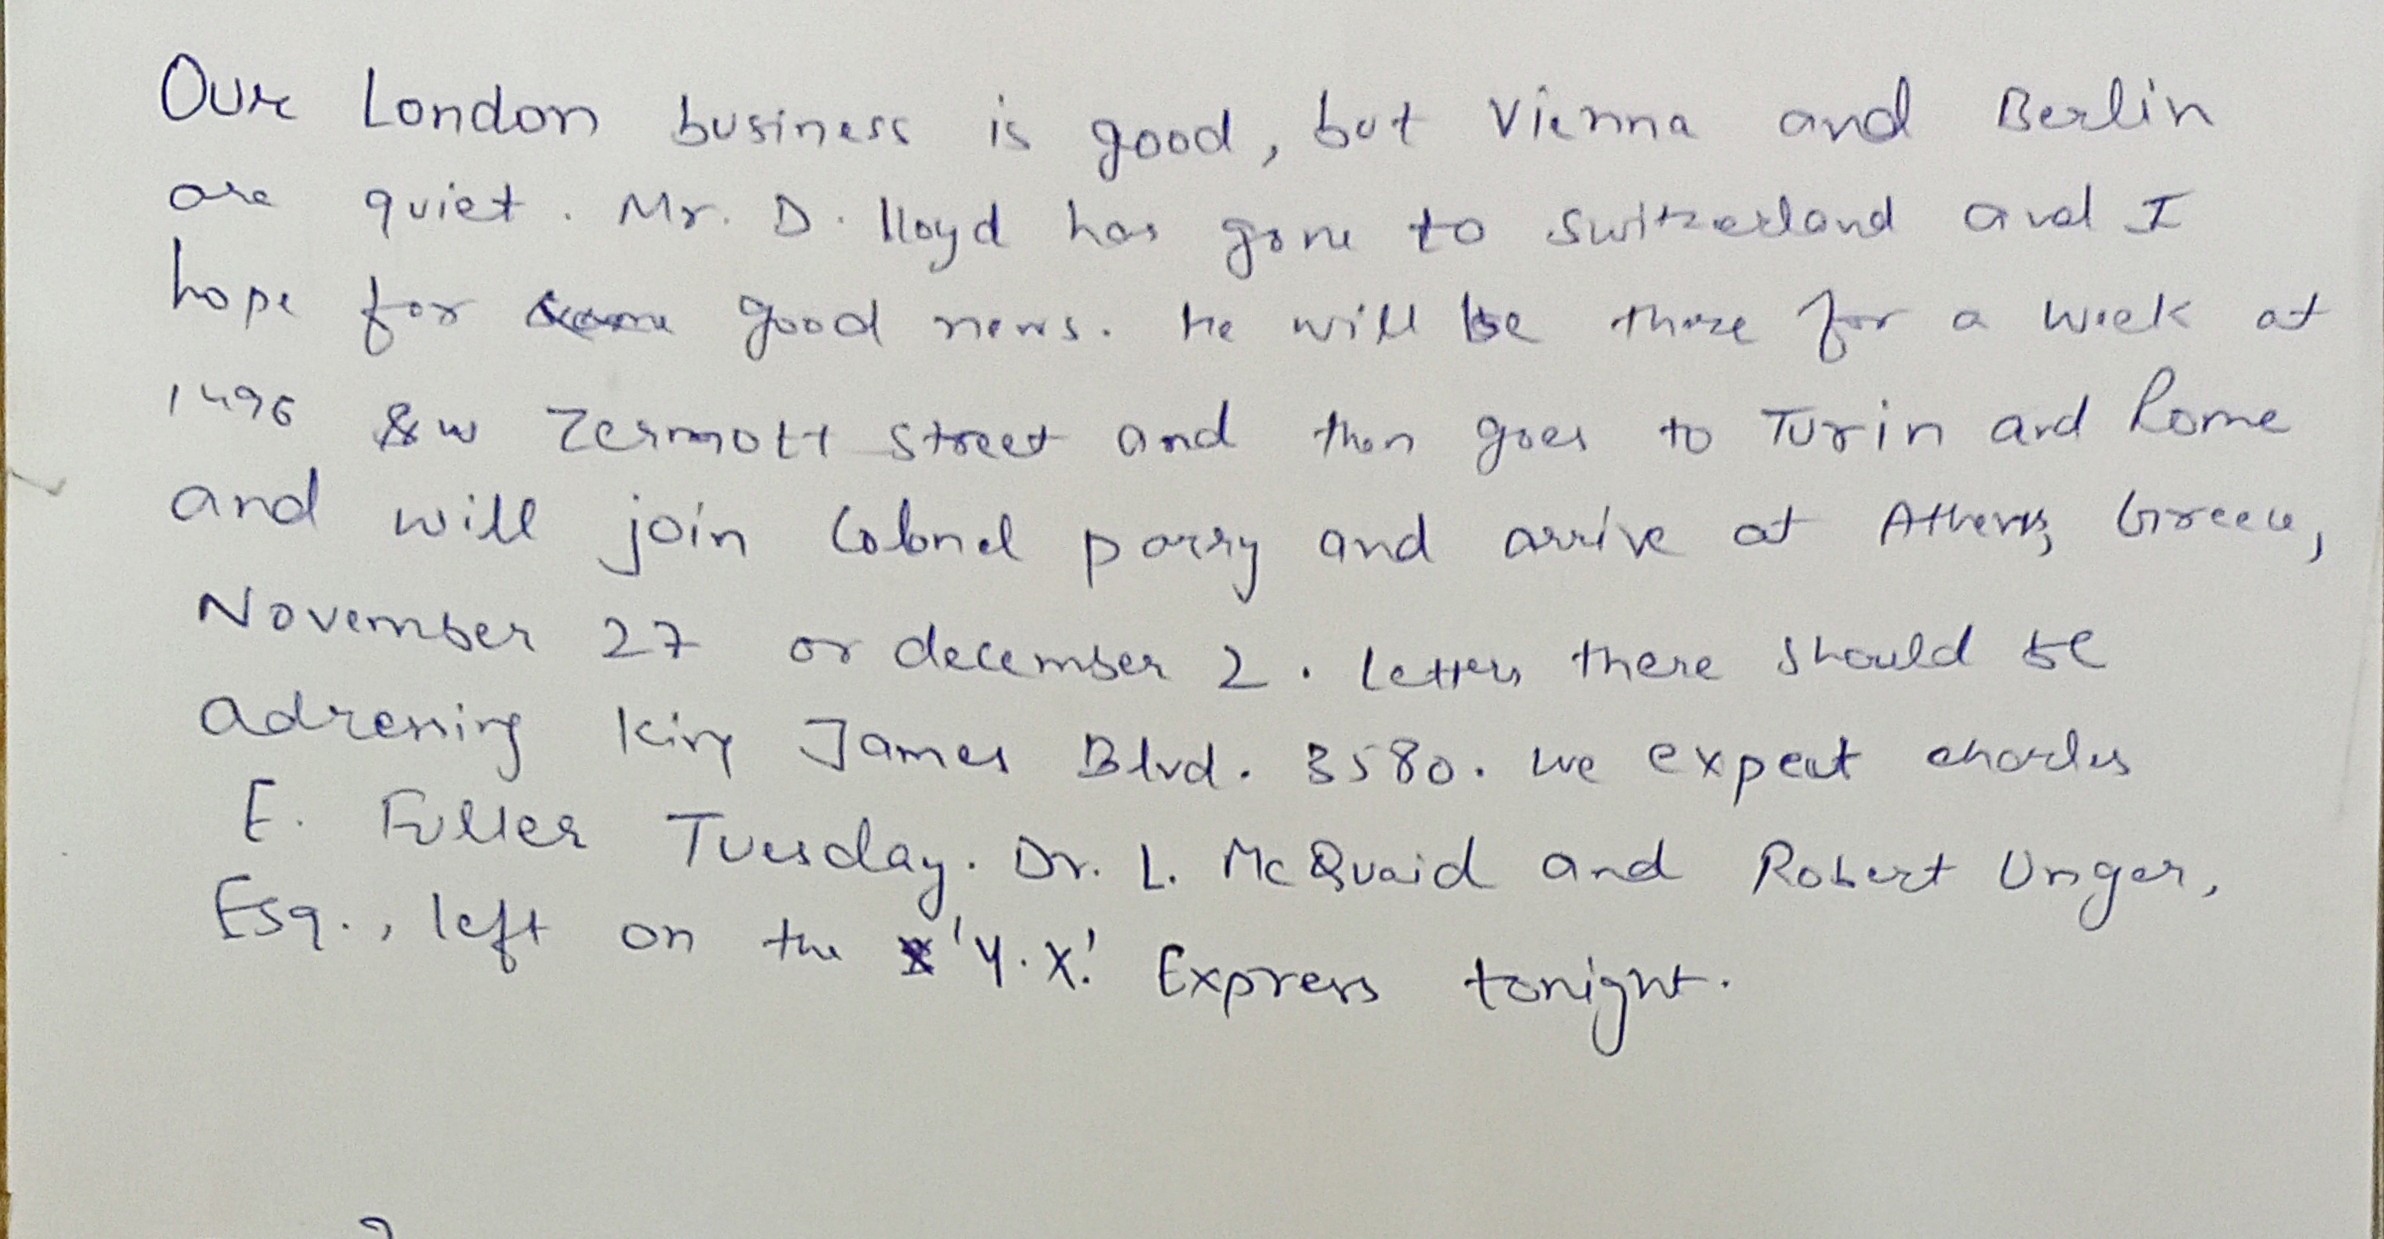 Our London business is good, but Vienna and Berlin
are quiet. Mr. D. lloyd has gone to switzerland and I
hope for good news. He will be there for a week at
1496 Zermott street and then goes to Turin and Rome
and will join Colonel parry and arrive at Athens, Greece,
November 27 or december 2. Letters there should be
adressing King James Blvd. 3580. We expect charles
E. Fuller Tuesday. Dr. L. McQuaid and Robert Unger,
Esq., left on the 'Y.X.' Express tonight.